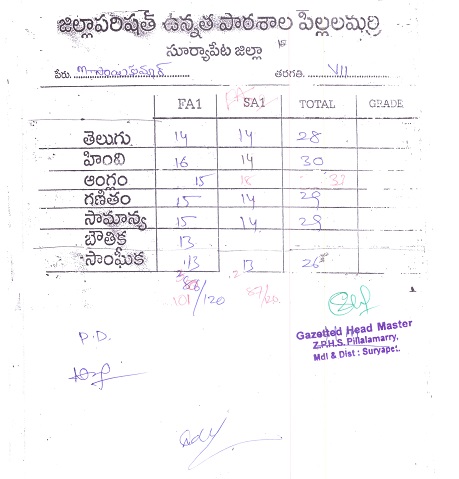 జిల్లాపరిషత్ ఉన్నత పాఠశాల పిల్లలమర్రి
సూర్యాపేట జిల్లా
పేరు. తరగతి. VII
FA1 SA1 TOTAL GRADE
తెలుగు 14 14 28
హింది 16 14 30
ఆంగ్లం 15 18 33
గణితం 15 14 29
సామాన్య 15 14 29
బౌతిక 13
సాంఘీక 13 13 26
101/120 87/120
P.D.
Gazetted Head Master
Z.P.H.S. Pillalamarry,
Mdl & Dist : Suryapet.